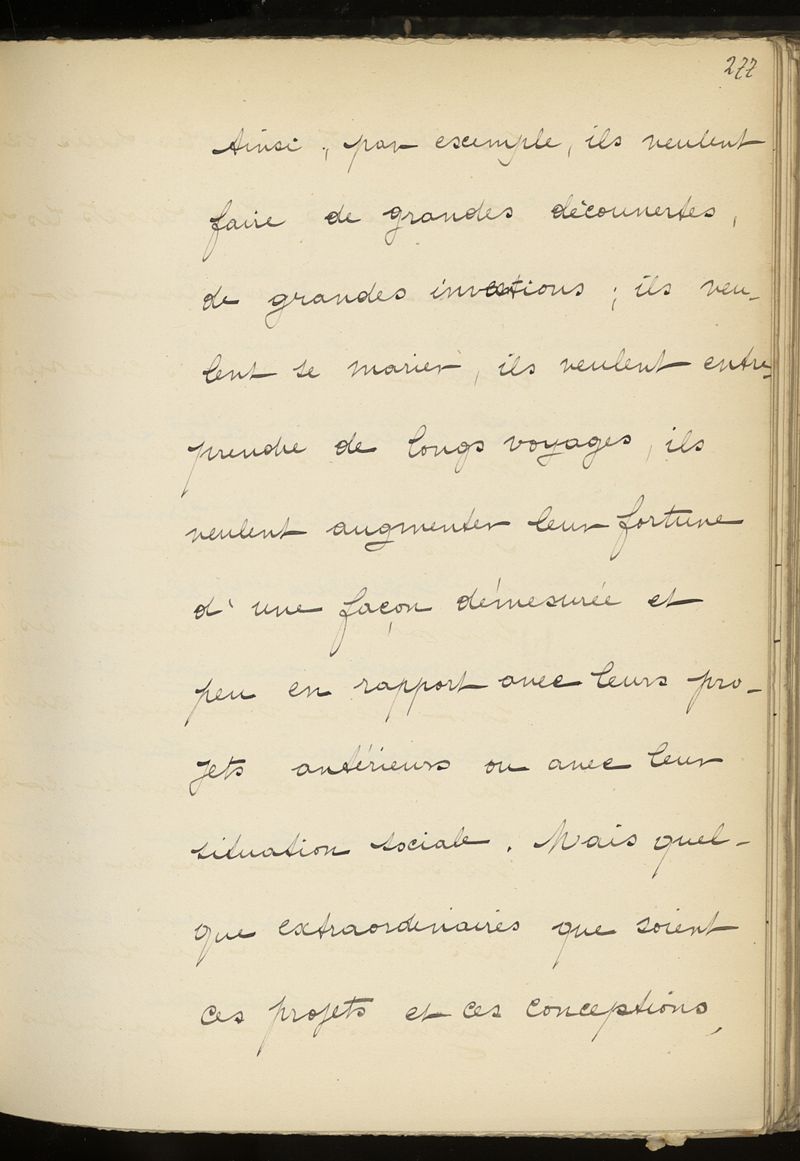 277
Ainsi, par exemple, ils veulent
faire de grandes découvertes,
de grandes inventions ; ils veu-
lent se marier, ils veulent entre-
prendre de longs voyages, ils
veulent augmenter leur fortune
d'une façon démesurée et
peu en rapport avec leurs pro-
jets antérieurs ou avec leur
situation sociale. Mais quel-
que extraordinaires que soient
ces projets et ces conceptions,